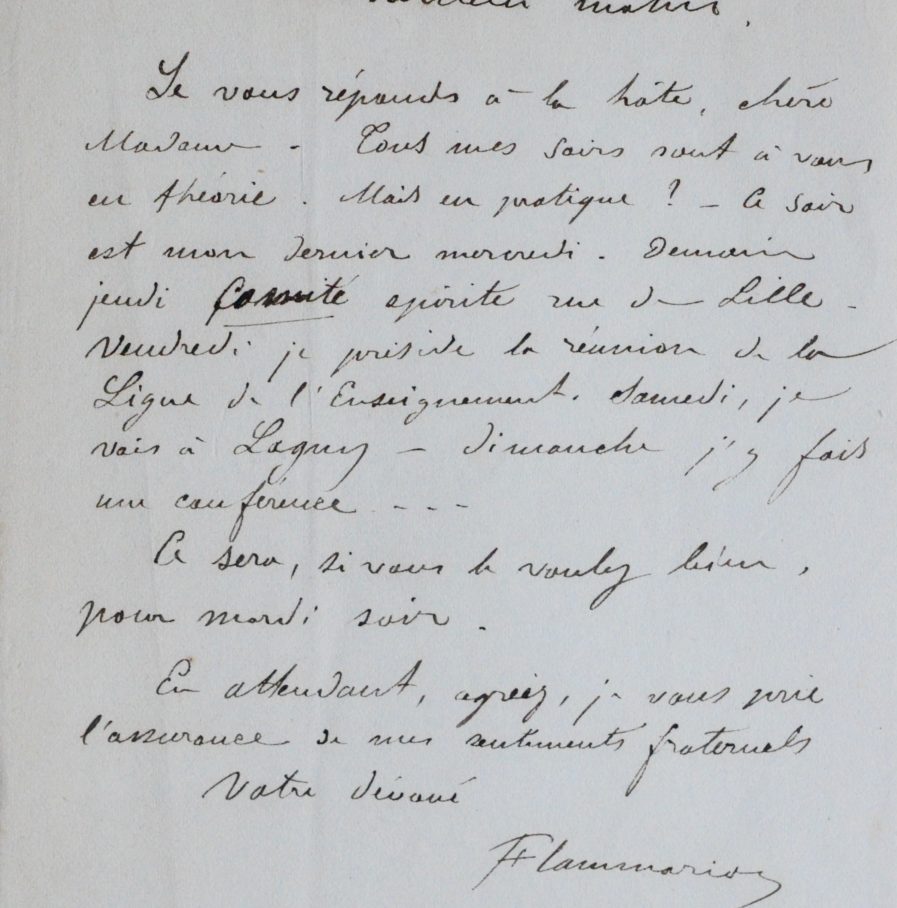 matin.
Je vous réponds à la hâte, chère
Madame - Tous mes soirs sont à vous
en théorie. Mais en pratique ? - Ce soir
est mon dernier mercredi. Demain
jeudi Comité spirite rue de Lille -
Vendredi je préside la réunion de la
Ligue de l'Enseignement. Samedi, je
vais à Lagny - dimanche j'y fais
une conférence - - -
Ce sera, si vous le voulez bien,
pour mardi soir.
En attendant, agréez, je vous prie
l'assurance de mes sentiments fraternels
Votre dévoué
Flammarion